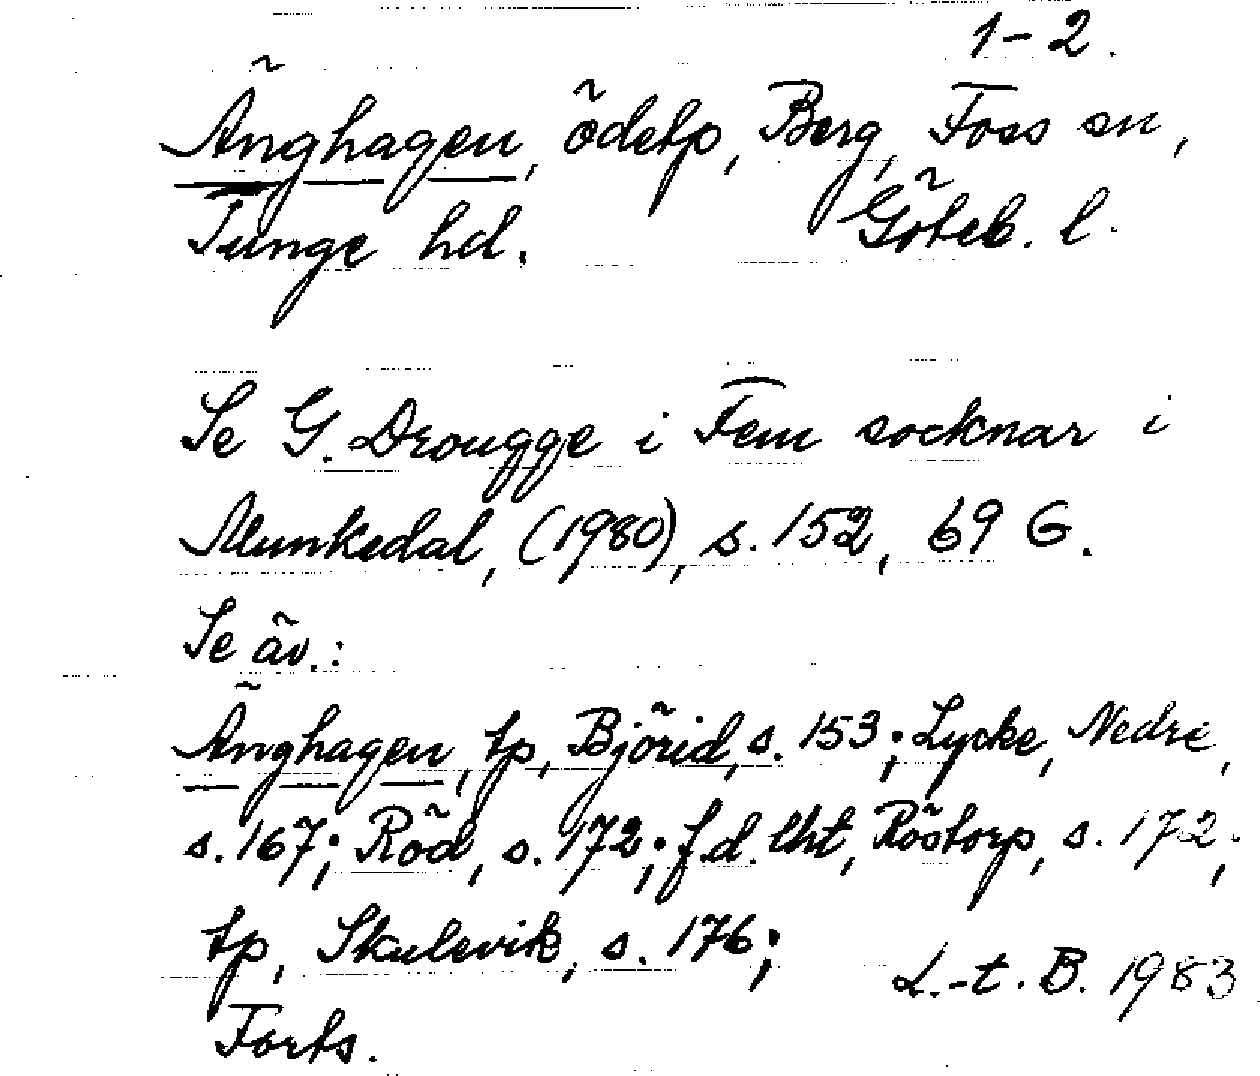 1-2.
Änghagen, ödetp, Berg, Foss sn,
Tunge hd. Göteb. l.
Se G. Drougge i Fem socknar i
Munkedal, (1980), s. 152, 69 G.
Se äv.:
Änghagen, tp, Björid, s. 153; Lycke, Nedre,
s. 167; Röd, s. 172; f.d. lht, Röstorp, s. 172;
tp, Skulevik, s. 176;
L.-t. B. 1983
Forts.